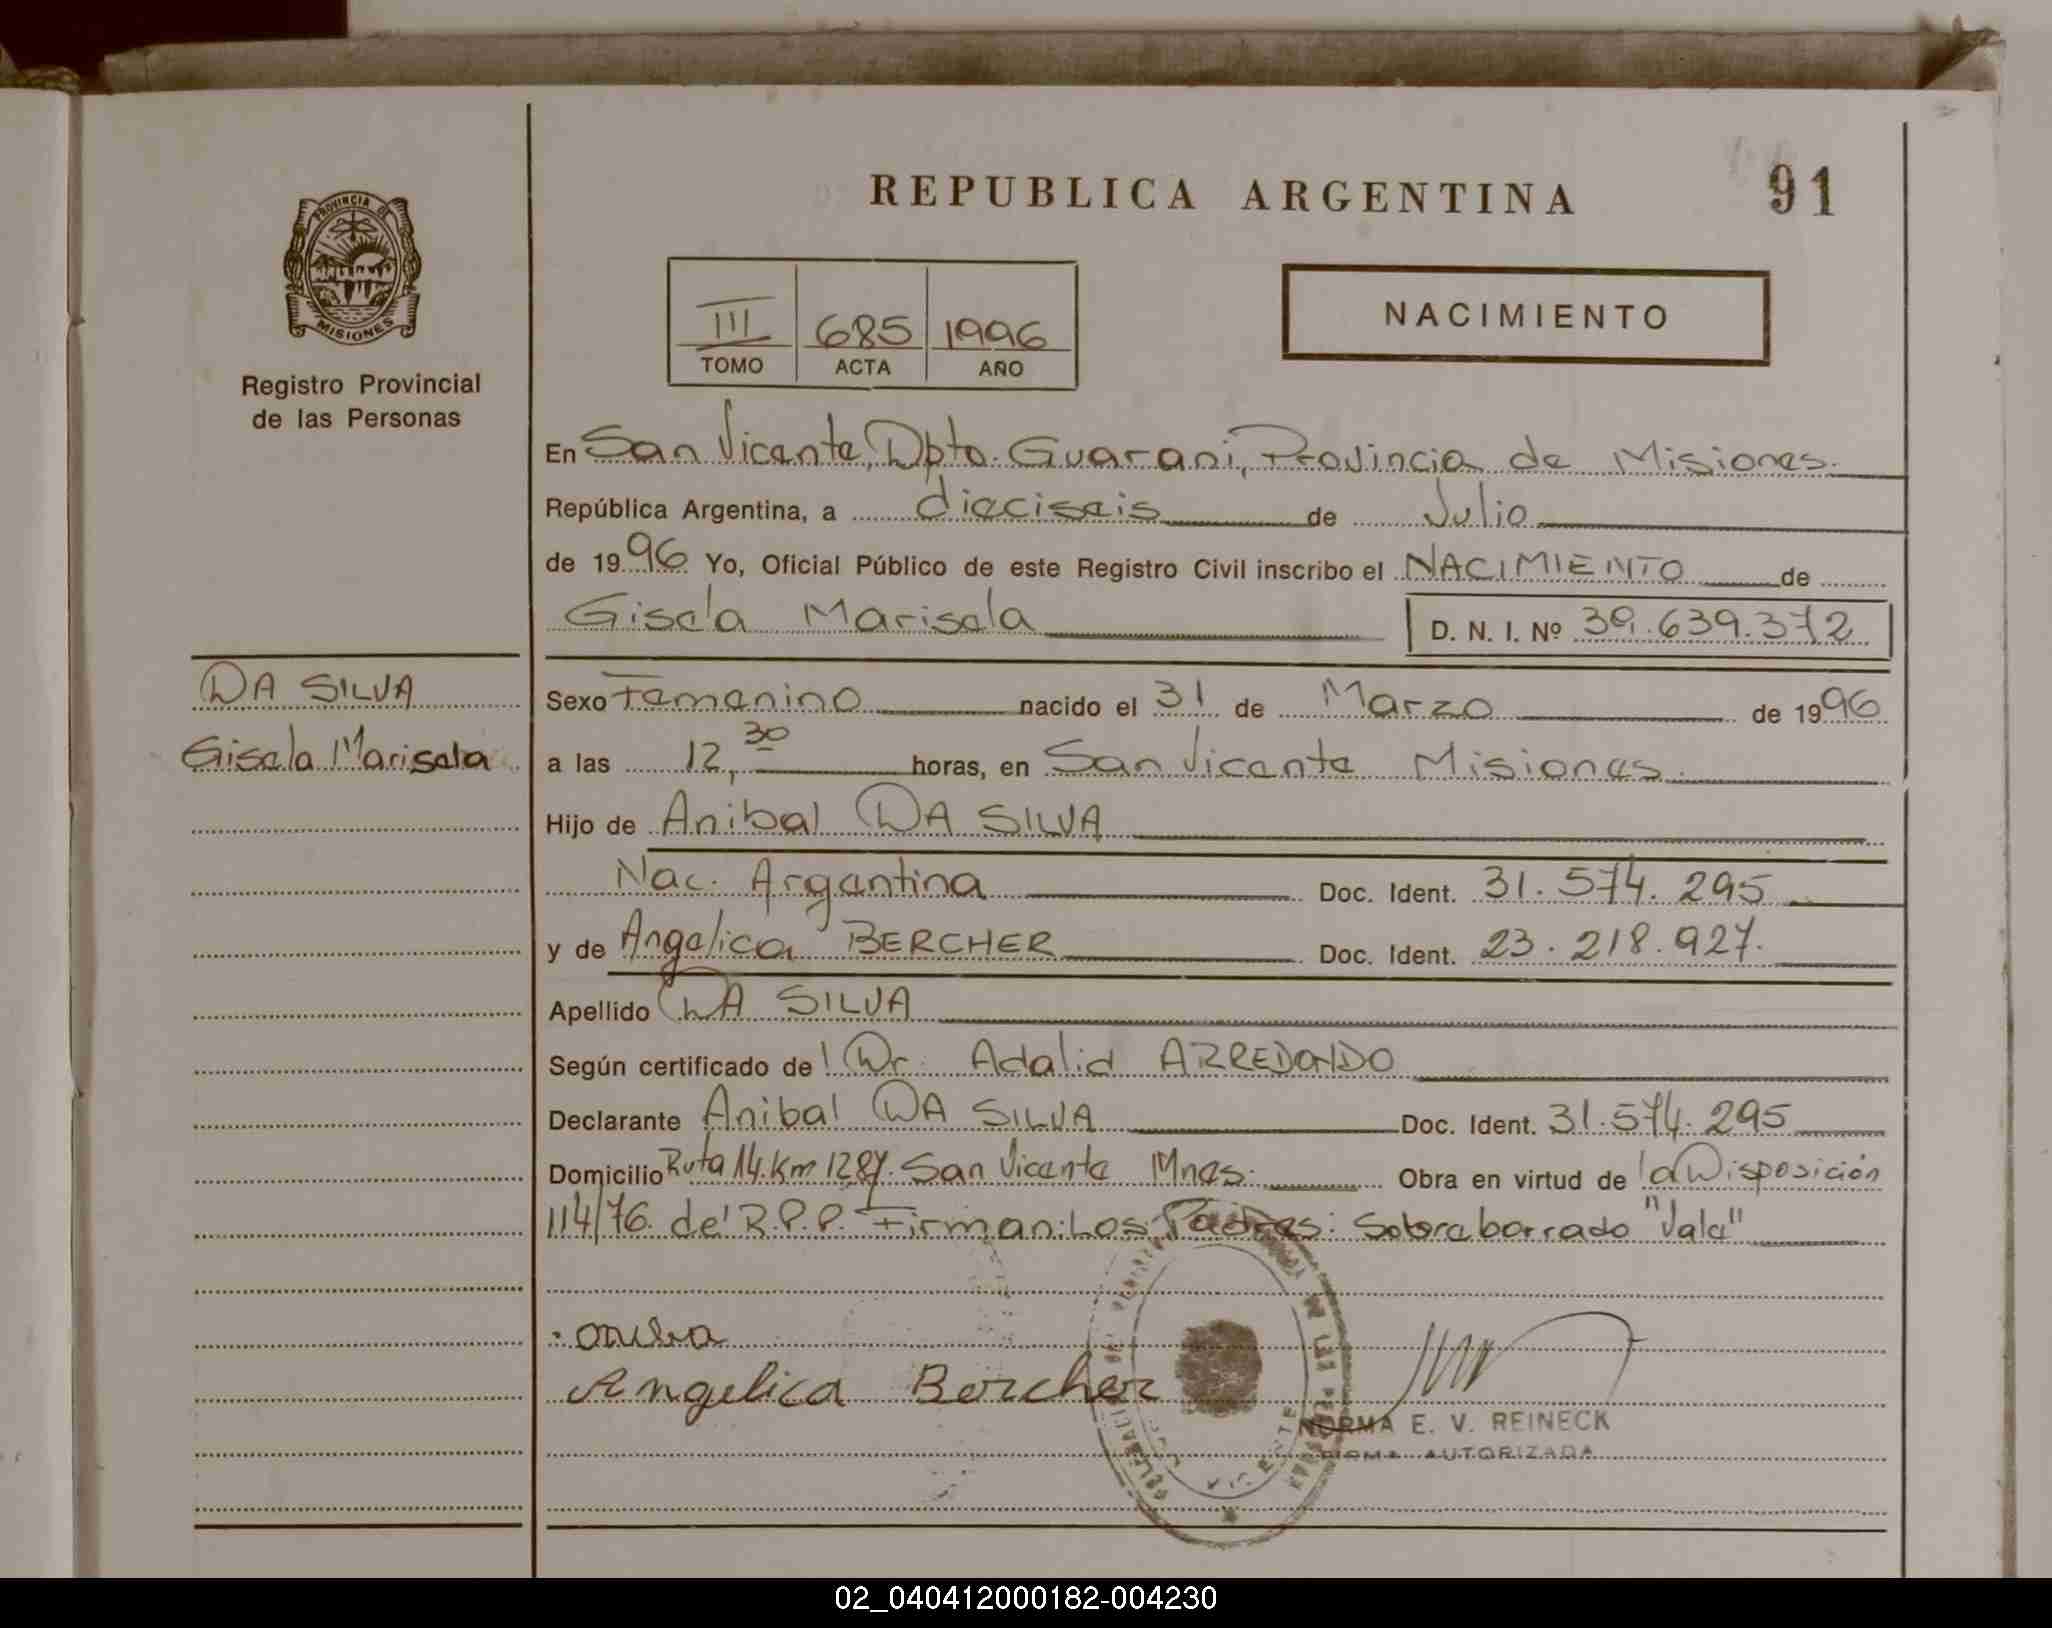 REPUBLICA ARGENTINA
91
PROVINCIA DE
MISIONES
Registro Provincial
de las Personas
III 685 1996
TOMO ACTA AÑO
NACIMIENTO
En San Vicente, Dpto. Guarani, Provincia de Misiones.
República Argentina, a dieciseis de Julio
de 1996 Yo, Oficial Público de este Registro Civil inscribo el NACIMIENTO de
Gisela Marisela D. N. I. Nº 39.639.372
DA SILVA
Gisela Marisela
Sexo Femenino nacido el 31 de Marzo de 1996
a las 12,30 horas, en San Vicente Misiones.
Hijo de Anibal DA SILVA
Nac. Argentina Doc. Ident. 31.574.295
y de Angelica BERCHER Doc. Ident. 23.218.927.
Apellido DA SILVA
Según certificado de l Dr. Adalid ARREDONDO
Declarante Anibal DA SILVA Doc. Ident. 31.574.295
Domicilio Ruta 14.Km 1287. San Vicente Mnes. Obra en virtud de la Disposición
114/76. del R.P.P. Firman: Los Padres: Sobre borrado "Vale"
Angelica Bercher
NORMA E. V. REINECK
FIRMA AUTORIZADA
02_040412000182-004230